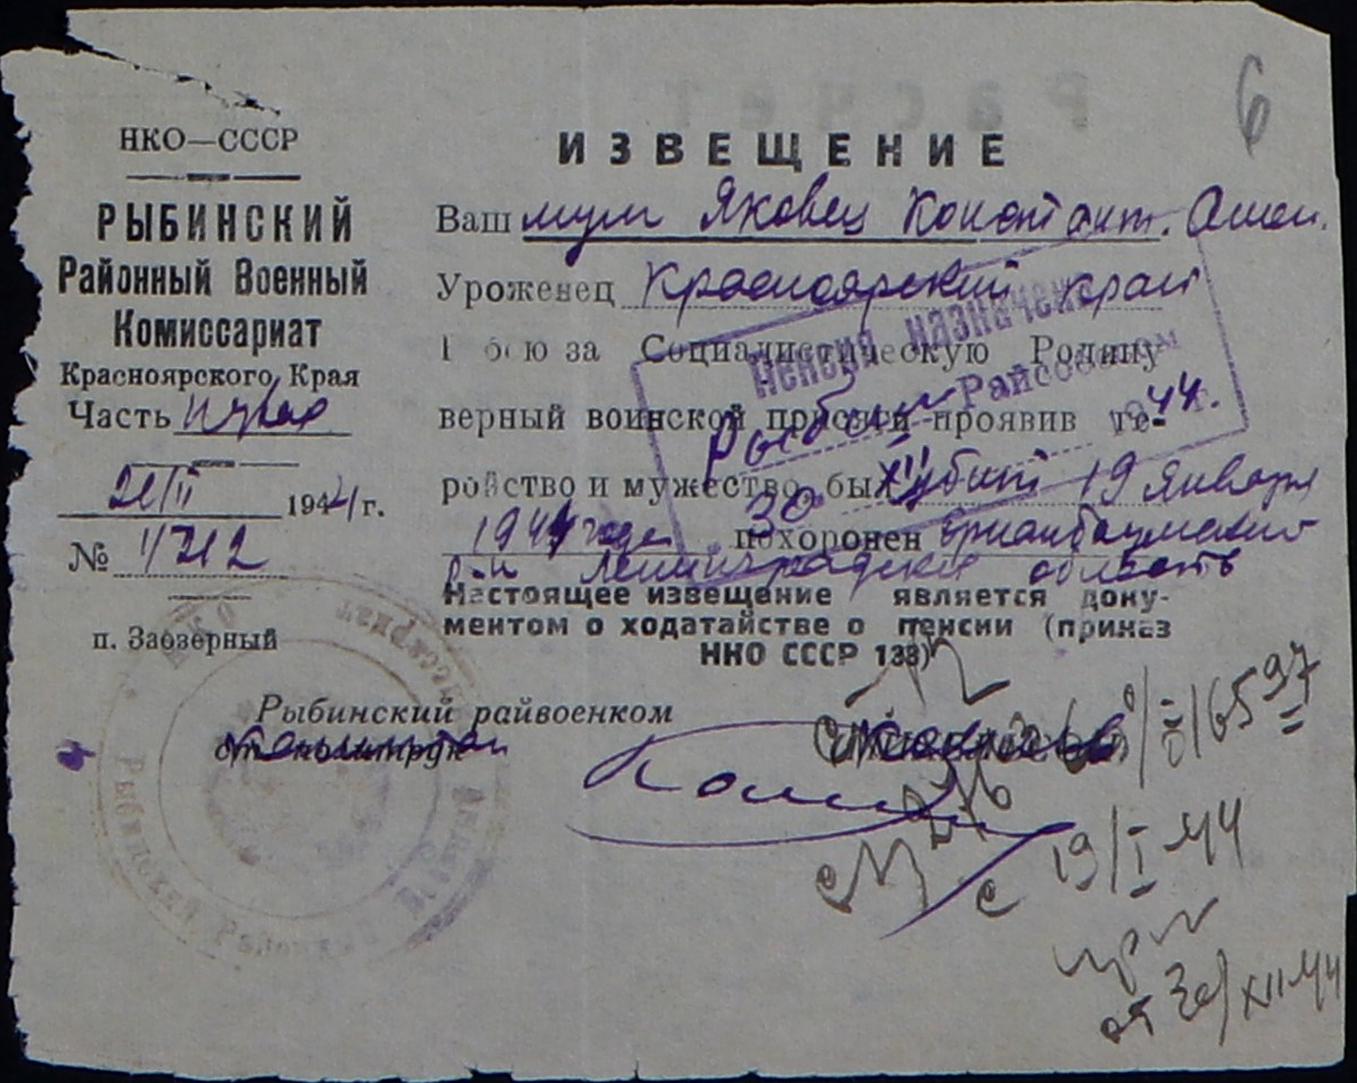 6
НКО—СССР
РЫБИНСКИЙ
Районный Военный
Комиссариат
Красноярского Края
Часть
21/II 1944 г.
№ 1/212
п. Заозерный
ИЗВЕЩЕНИЕ
Ваш муж Яковец Констант. Семен.
Уроженец Красноярский край
Социалистическую Родину
верный воинской присяги проявив ге-
ройство и мужество был убит 19 января
1944 года похоронен Ораниенбаумский
р-н Ленинградская область
Настоящее извещение является доку-
ментом о ходатайстве о пенсии (приказ
НКО СССР 138)
Пенсия назначена
Рыбин Райсобесом
30 XII 1944 г.
Рыбинский райвоенком
ст. политрук
16597
с 19/I-44
от 30/XII 44
Рыбинский Районный